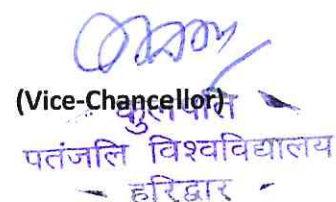 (Vice-Chancellor)
कुलपति
पतंजलि विश्वविद्यालय
हरिद्वार